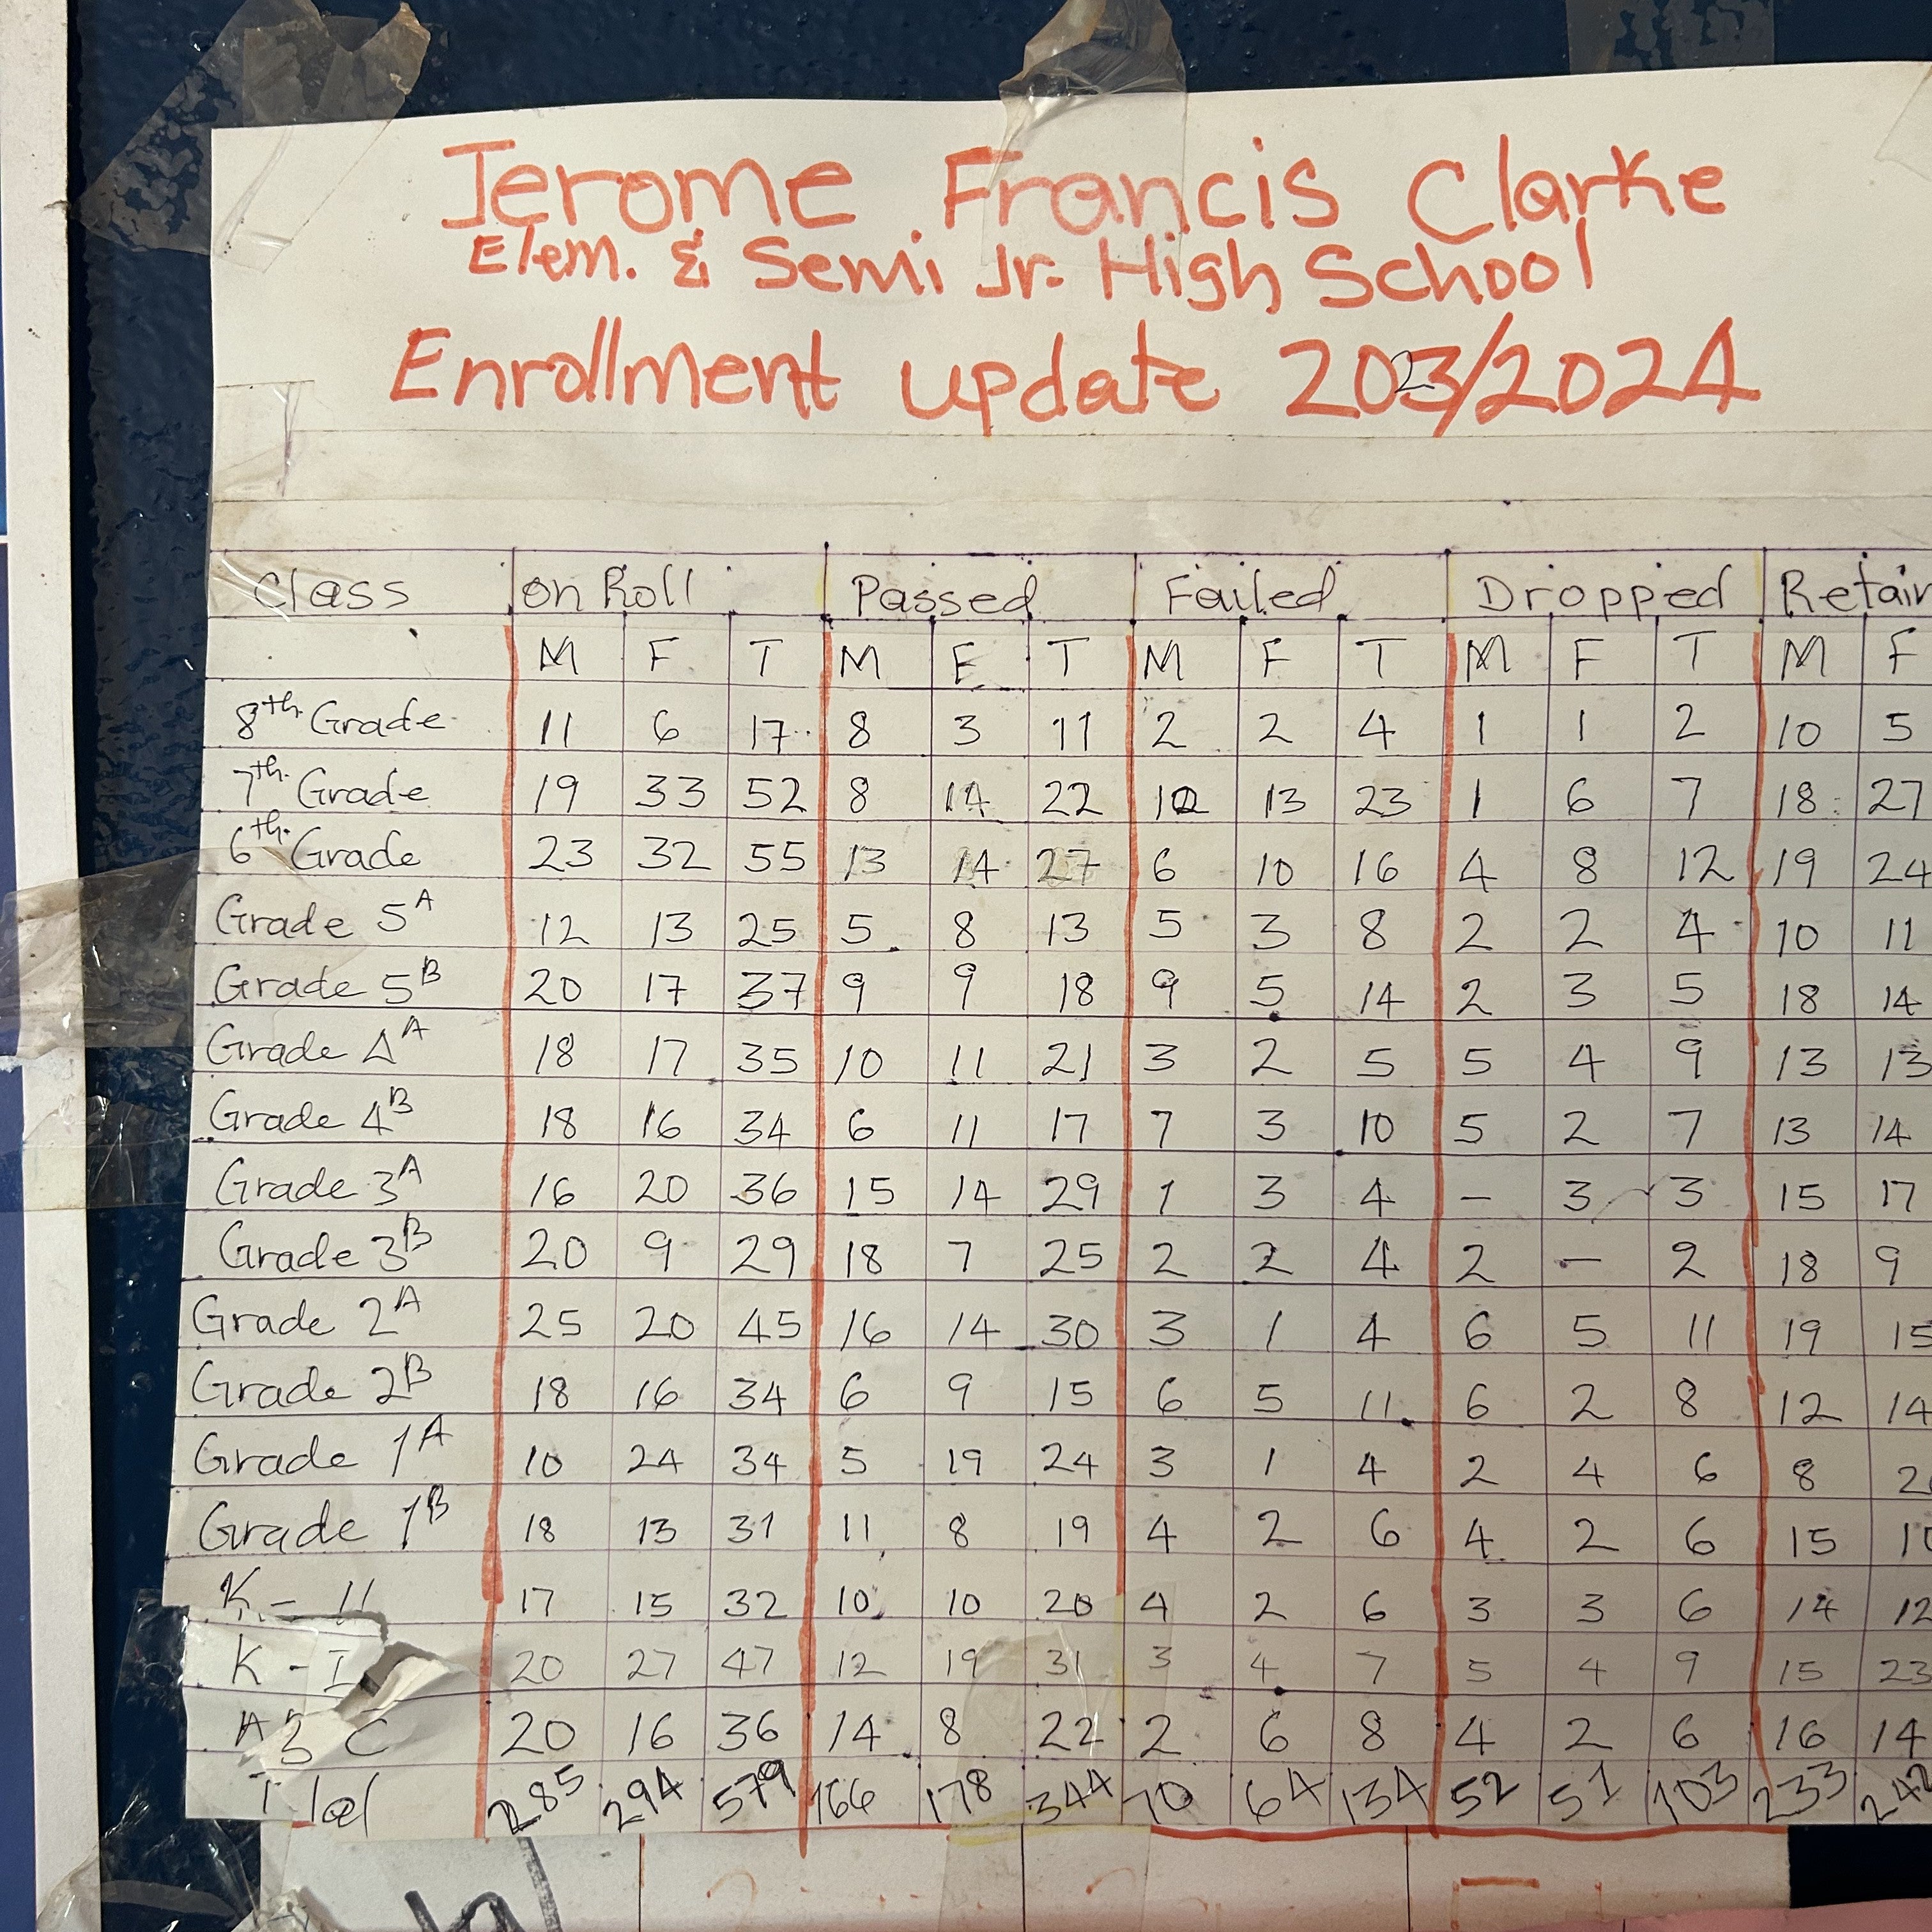 Jerome Francis Clarke
Elem. & Semi Jr. High School
Enrollment update 2023/2024
Class on Roll Passed Failed Dropped Retain
M F T M F T M F T M F T M F
8th Grade 11 6 17 8 3 11 2 2 4 1 1 2 10 5
7th Grade 19 33 52 8 14 22 10 13 23 1 6 7 18 27
6th Grade 23 32 55 13 14 27 6 10 16 4 8 12 19 24
Grade 5A 12 13 25 5 8 13 5 3 8 2 2 4 10 11
Grade 5B 20 17 37 9 9 18 9 5 14 2 3 5 18 14
Grade 4A 18 17 35 10 11 21 3 2 5 5 4 9 13 13
Grade 4B 18 16 34 6 11 17 7 3 10 5 2 7 13 14
Grade 3A 16 20 36 15 14 29 1 3 4 - 3 3 15 17
Grade 3B 20 9 29 18 7 25 2 2 4 2 - 2 18 9
Grade 2A 25 20 45 16 14 30 3 1 4 6 5 11 19 15
Grade 2B 18 16 34 6 9 15 6 5 11 6 2 8 12 14
Grade 1A 10 24 34 5 19 24 3 1 4 2 4 6 8
Grade 1B 18 13 31 11 8 19 4 2 6 4 2 6 15
K - II 17 15 32 10 10 20 4 2 6 3 3 6 14 12
K - I 20 27 47 12 19 31 3 4 7 5 4 9 15 23
A B C 20 16 36 14 8 22 2 6 8 4 2 6 16 14
Total 285 294 579 166 178 344 70 64 134 52 51 103 233 242